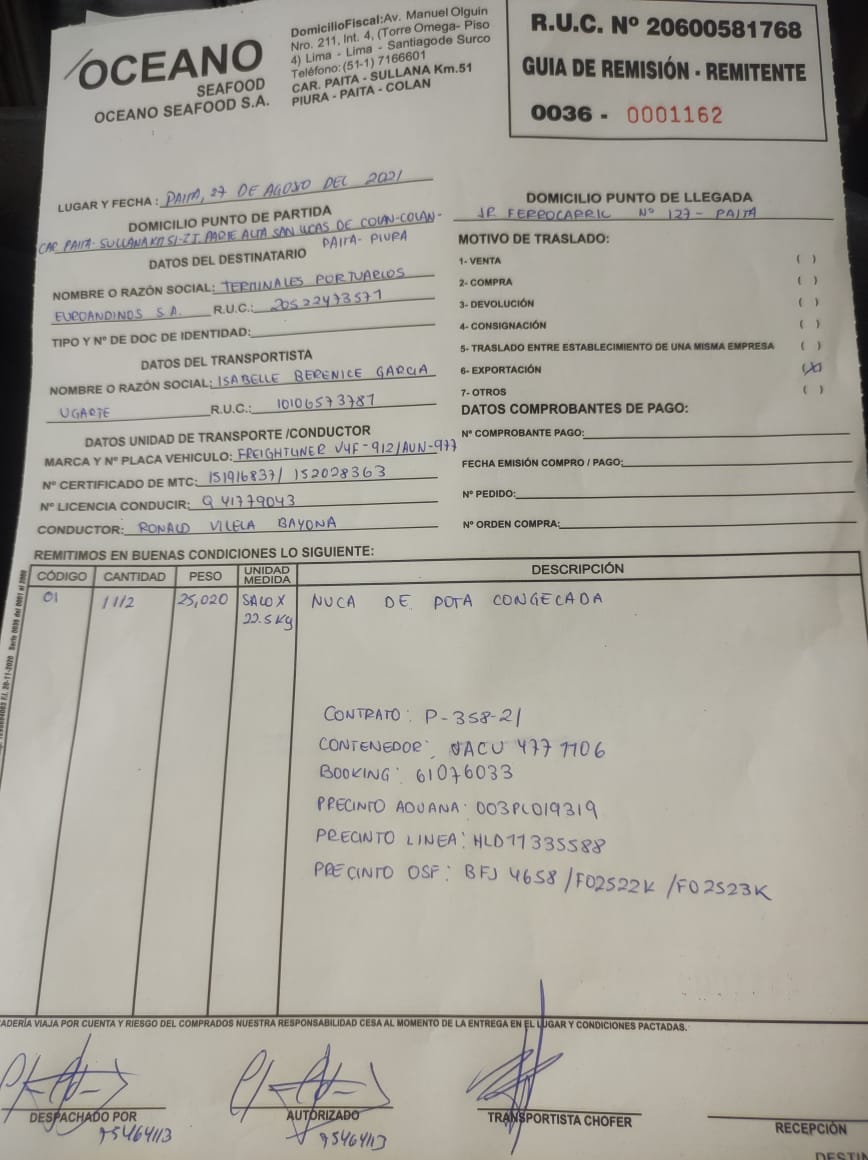 OCEANO
SEAFOOD
OCEANO SEAFOOD S.A.
DomicilioFiscal:Av. Manuel Olguin
Nro. 211, Int. 4, (Torre Omega- Piso
4) Lima - Lima - Santiagode Surco
Teléfono: (51-1) 7166601
CAR. PAITA - SULLANA Km.51
PIURA - PAITA - COLAN
R.U.C. Nº 20600581768
GUIA DE REMISIÓN - REMITENTE
0036 - 0001162
LUGAR Y FECHA : PAITA, 27 DE AGOSO DEL 2021
DOMICILIO PUNTO DE PARTIDA
CAR PAITA- SULLANA KM 51- Z I. PARTE ALTA SAN LUCAS DE COLAN-COLAN-
PAITA- PIURA
DATOS DEL DESTINATARIO
NOMBRE O RAZÓN SOCIAL: TERMINALES PORTUARIOS
EUROANDINOS S A. R.U.C.: 20522473571
TIPO Y Nº DE DOC DE IDENTIDAD:
DATOS DEL TRANSPORTISTA
NOMBRE O RAZÓN SOCIAL: ISABELLE BERENICE GARCIA
UGARTE R.U.C.: 10106573787
DATOS UNIDAD DE TRANSPORTE /CONDUCTOR
MARCA Y Nº PLACA VEHICULO: FREIGHTLINER V4F-912/AUN-977
Nº CERTIFICADO DE MTC: 151916837/ 152028363
Nº LICENCIA CONDUCIR: Q 41779043
CONDUCTOR: RONALD VILELA BAYONA
DOMICILIO PUNTO DE LLEGADA
JR FERROCARRIL Nº 127- PAITA
MOTIVO DE TRASLADO:
1- VENTA ( )
2- COMPRA ( )
3- DEVOLUCIÓN ( )
4- CONSIGNACIÓN ( )
5- TRASLADO ENTRE ESTABLECIMIENTO DE UNA MISMA EMPRESA ( )
6- EXPORTACIÓN (X)
7- OTROS ( )
DATOS COMPROBANTES DE PAGO:
Nº COMPROBANTE PAGO:
FECHA EMISIÓN COMPRO / PAGO:
Nº PEDIDO:
Nº ORDEN COMPRA:
REMITIMOS EN BUENAS CONDICIONES LO SIGUIENTE:
CÓDIGO CANTIDAD PESO UNIDAD MEDIDA DESCRIPCIÓN
01 1112 25,020 SACO X NUCA DE POTA CONGELADA
22.5 Kg
CONTRATO: P-358-21
CONTENEDOR: UACU 477 1106
BOOKING: 61076033
PRECINTO ADUANA: 003PL019319
PRECINTO LINEA: HLD11335588
PRECINTO OSF: BFJ 4658 /F02522K /F02523K
F.I. 20-11-2020 Serie 0036 del 0001 al 2000
ADERÍA VIAJA POR CUENTA Y RIESGO DEL COMPRADOS NUESTRA RESPONSABILIDAD CESA AL MOMENTO DE LA ENTREGA EN EL LUGAR Y CONDICIONES PACTADAS.
DESPACHADO POR
75464113
AUTORIZADO
75464113
TRANSPORTISTA CHOFER
RECEPCIÓN